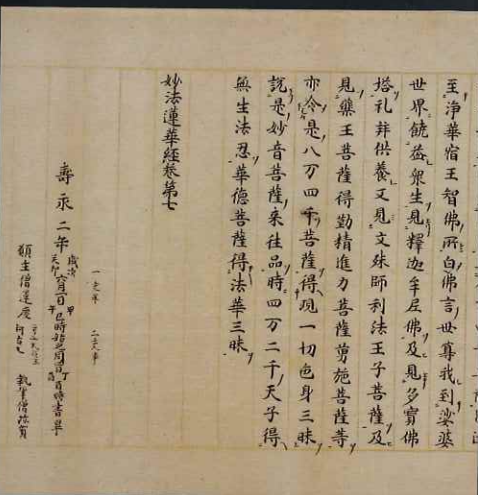 至淨華宿王智佛所白佛言世尊我到娑婆
世界饒益衆生見釋迦牟尼佛及見多寶佛
塔礼拜供養又見文殊師利法王子菩薩及
見藥王菩薩得勤精進力菩薩勇施菩薩等
亦令是八万四千菩薩得現一切色身三昧
說是妙音菩薩来往品時四万二千天子得
無生法忍華德菩薩得法華三昧
妙法蓮華經卷第七
一交畢 二交畢
壽永二年歳次癸卯六月 巳時始之 時書畢
願主僧運慶 執筆僧珍賀